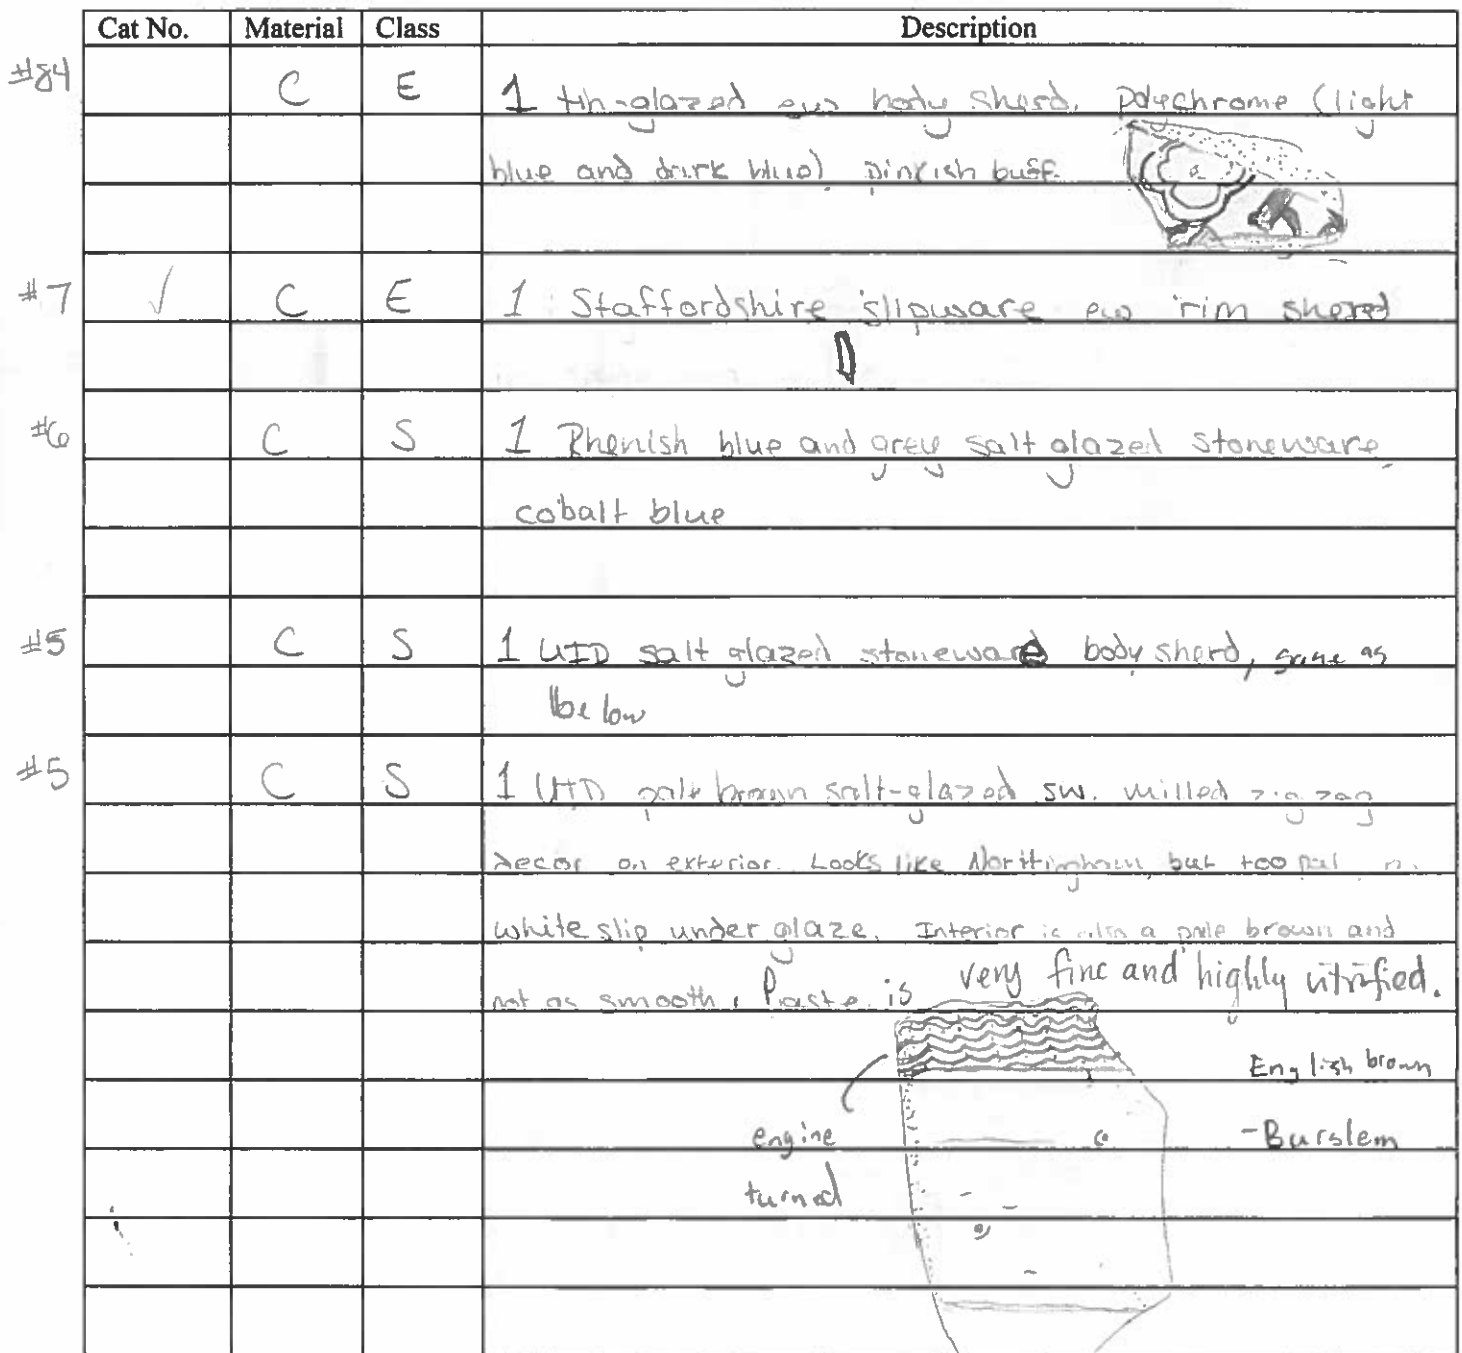 Cat No. Material Class Description
#84 C E 1 tin-glazed ew body sherd, polychrome (light
blue and dark blue) pinkish buff.
#7 ✓ C E 1 Staffordshire slipware ew rim sherd
#6 C S 1 Rhenish blue and grey salt glazed stoneware,
cobalt blue
#5 C S 1 UID salt glazed stoneware body sherd, same as
below
#5 C S 1 UID pale brown salt-glazed sw. milled zig zag
decor on exterior. Looks like Nottingham, but too
white slip under glaze. Interior is also a pale brown and
not as smooth. Paste is very fine and highly vitrified.
English brown
engine - Burslem
turned